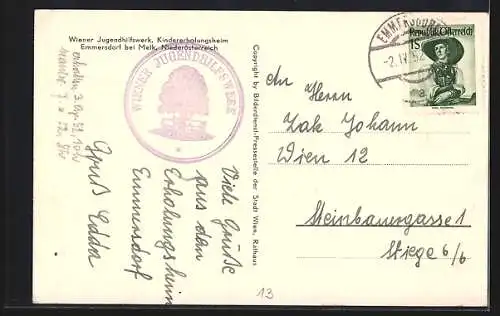 Wiener Jugendhilfswerk, Kindererholungsheim
Emmersdorf bei Melk, Niederösterreich
WIENER JUGENDHILFSWERK
Copyright by Bilderdienst-Pressestelle der Stadt Wien, Rathaus
EMMERSDORF
-2.IV.52
Republik Österreich
1S
An Herrn
Zak Johann
Wien 12
Steinbauergasse 1
Stiege 6/6
Viele Grüße
aus dem
Erholungsheim
Emmersdorf
Gruß Edda
erhalten 3. Apr. 52, 10 Uhr
13